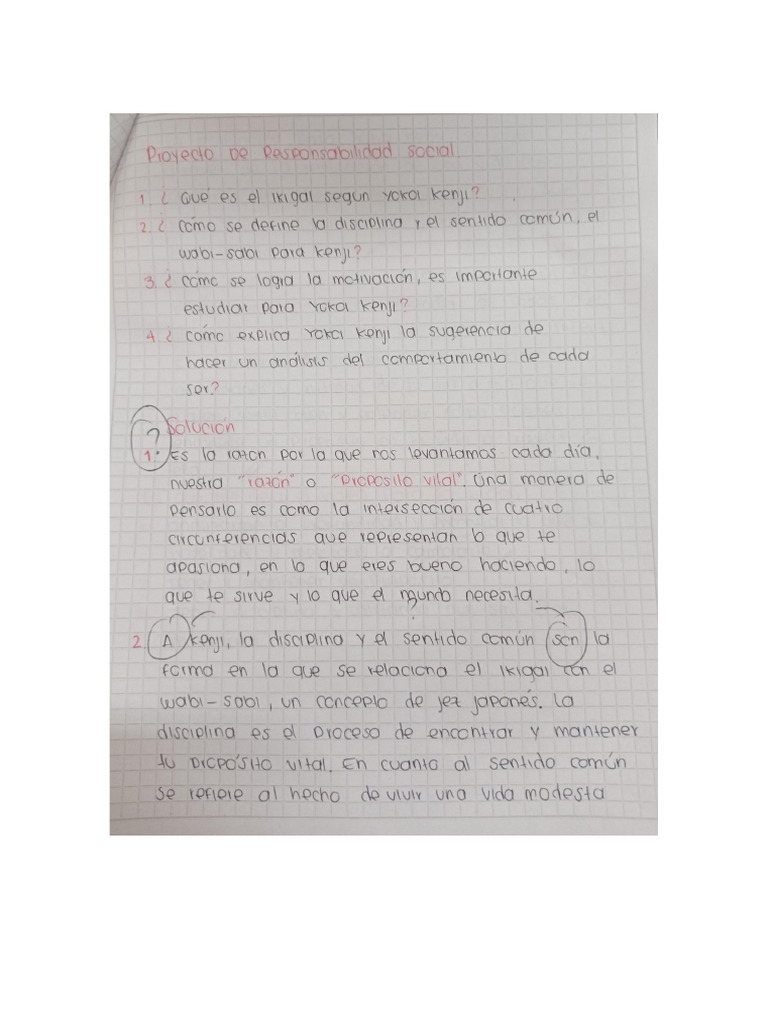 Proyecto de Responsabilidad Social.
1. ¿ Qué es el Ikigai segun Yokoi Kenji?
2. ¿ Cómo se define la disciplina y el sentido común, el
wabi-sabi para Kenji?
3. ¿ Cómo se logra la motivación, es importante
estudiar para Yokoi Kenji?
4 ¿ Cómo explica Yokoi Kenji la sugerencia de
hacer un análisis del comportamiento de cada
ser?
?
Solución
1. Es la razon por la que nos levantamos cada día,
nuestra "razón" o "Proposito vital". Una manera de
pensarlo es como la intersección de cuatro
circunferencias que representan lo que te
apasiona, en lo que eres bueno haciendo, lo
que te sirve y lo que el mundo necesita.
2. A Kenji, la disciplina y el sentido común son la
forma en la que se relaciona el Ikigai con el
wabi-sabi, un concepto de jez japonés. La
disciplina es el proceso de encontrar y mantener
tu propósito vital. En cuanto al sentido común
se refiere al hecho de vivir una vida modesta